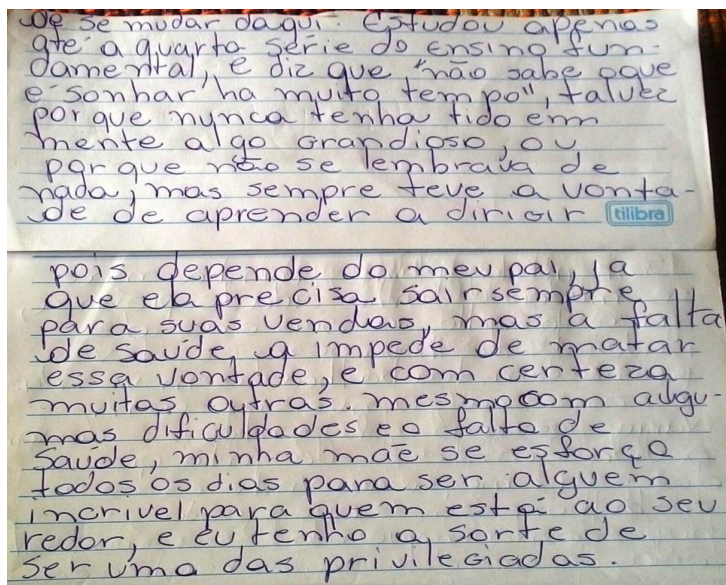 de se mudar daqui. Estudou apenas
até a quarta série do ensino fun-
damental, e diz que "não sabe oque
e sonhar ha muito tempo", talvez
porque nunca tenha tido em
mente algo grandioso, ou
porque não se lembrava de
nada, mas sempre teve a vonta-
de de aprender a dirigir tilibra
pois depende do meu pai, ja
que ela precisa sair sempre
para suas vendas, mas a falta
de saúde a impede de matar
essa vontade, e com certeza
muitas outras. mesmo com algu-
mas dificuldades e a falta de
saúde, minha mãe se esforça
todos os dias para ser alguem
incrivel para quem está ao seu
redor, e eu tenho a sorte de
ser uma das privilegiadas.